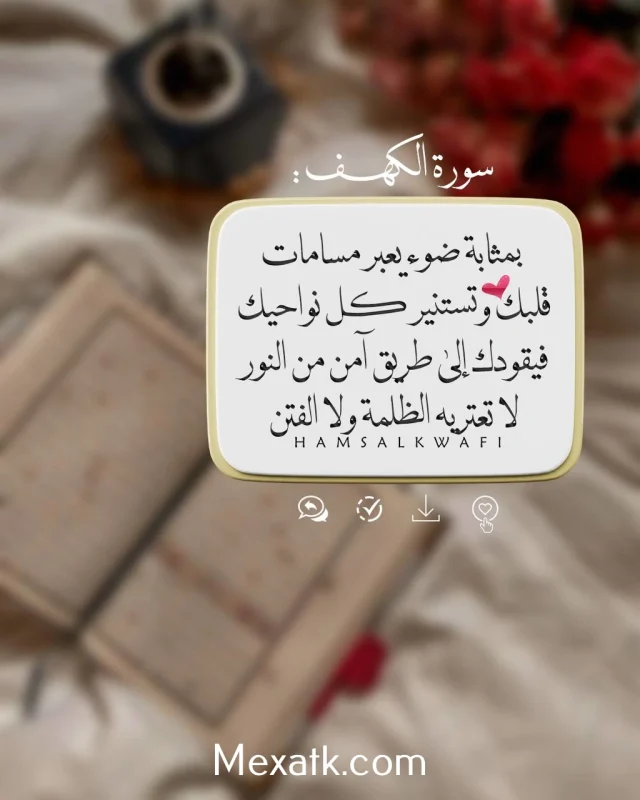 سورة الكهف:
بمثابة ضوء يعبر مسامات
قلبك وتستنير كل نواحيك
فيقودك إلى طريق آمن من النور
لا تعتريه الظلمة ولا الفتن
HAMSALKWAFI
Mexatk.com